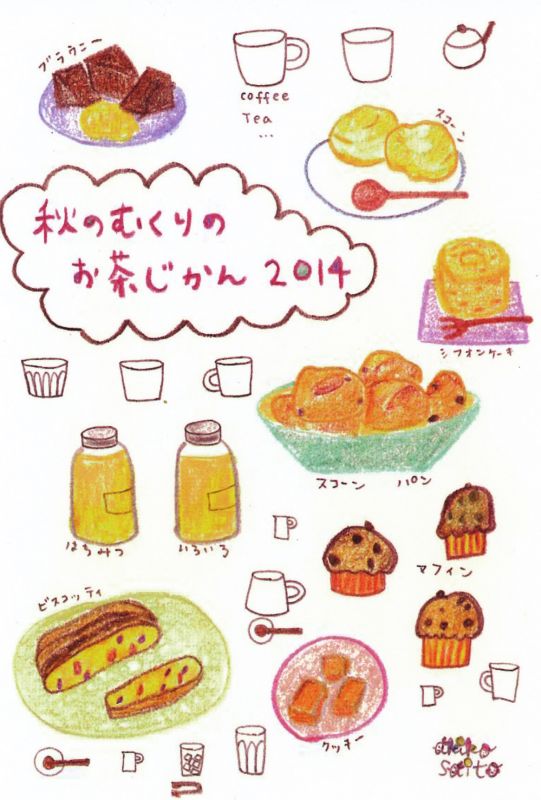 ブラウニー
coffee
Tea
...
スコーン
秋のむくりの
お茶じかん 2014
シフォンケーキ
スコーン パン
はちみつ いろいろ
マフィン
ビスコッティ
クッキー
akiko
saito